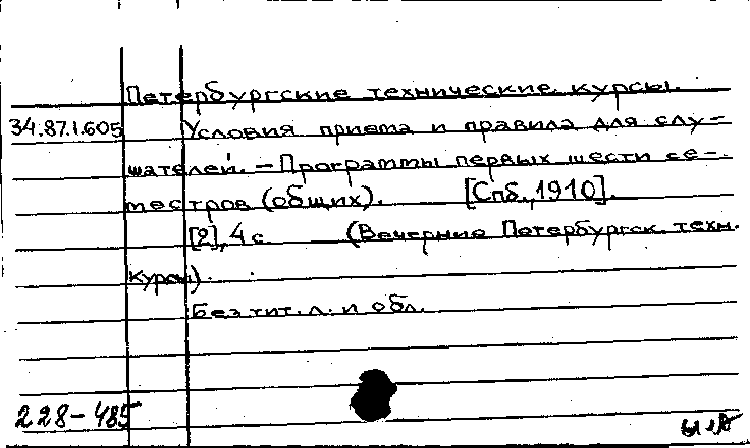 Петербургские технические курсы.
34.87.1.605 Условия приема и правила для слу-
шателей. – Программы первых шести се-
местров (общих). [Спб., 1910].
[2], 4 с. (Вечерние Петербургск. техн.
курсы).
Без тит. л. и обл.
228-485